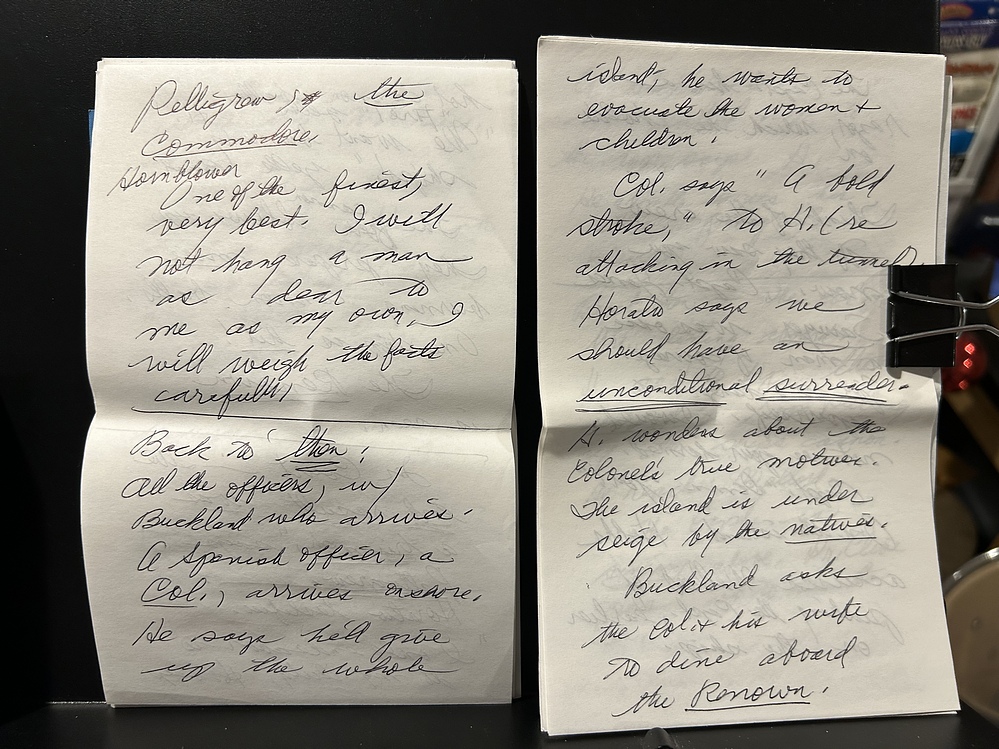 Pelligrew, the
Commodore.
Hornblower
One of the finest,
very best. I will
not hang a man
as dear to
me as my own, I
will weigh the facts
carefully
Back to then:
All the officers, w/
Buckland who arrives.
A Spanish officer, a
Col., arrives onshore.
He says he'll give
up the whole
island, he wants to
evacuate the women +
children.
Col. says "A bold
stroke," to H. (re
attacking in the tunnel)
Horatio says we
should have an
unconditional surrender.
H. wonders about the
Colonel's true motives.
The island is under
seige by the natives.
Buckland asks
the Col. + his wife
to dine aboard
the Renown.